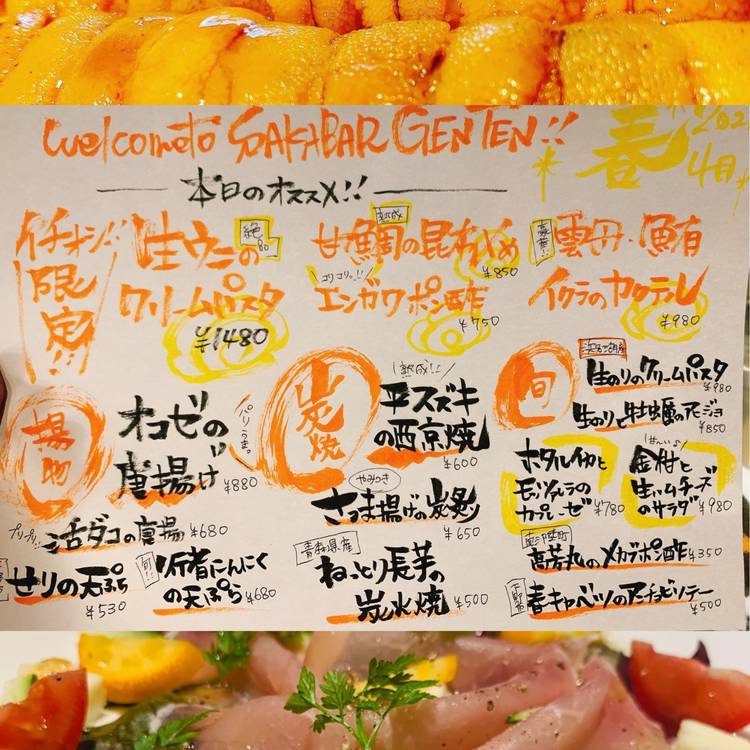 Welcome to SAKABAR GENTEN!!
春
4月
本日のオススメ!!
イチオシ!!
限定!!
生ウニの
クリームパスタ
¥1480
熟成
甘鯛の昆布〆
¥850
コリコリッ!!
エンガワポン酢
¥750
豪華!!
雲丹・鮪
イクラのカクテル
¥980
揚物
オコゼの
唐揚げ
パリうま。
¥880
プリプリ!!
活ダコの唐揚
¥680
せりの天ぷら
¥530
旬!!
行者にんにく
の天ぷら
¥680
炭焼
熟成!!
平スズキ
の西京焼
¥600
やみつき
さつま揚げの炭炙
¥650
青森県産
ねっとり長芋の
炭火焼
¥500
旬
浜名湖産
生のりのクリームパスタ
¥980
生のりと牡蠣のアヒージョ
¥850
ホタルイカと
モッツァレラの
カプレーゼ
¥780
甘〜い♪
金柑と
生ハムチーズ
のサラダ
¥980
高芳丸のメカブポン酢
¥350
春キャベツのアンチョビソテー
¥500